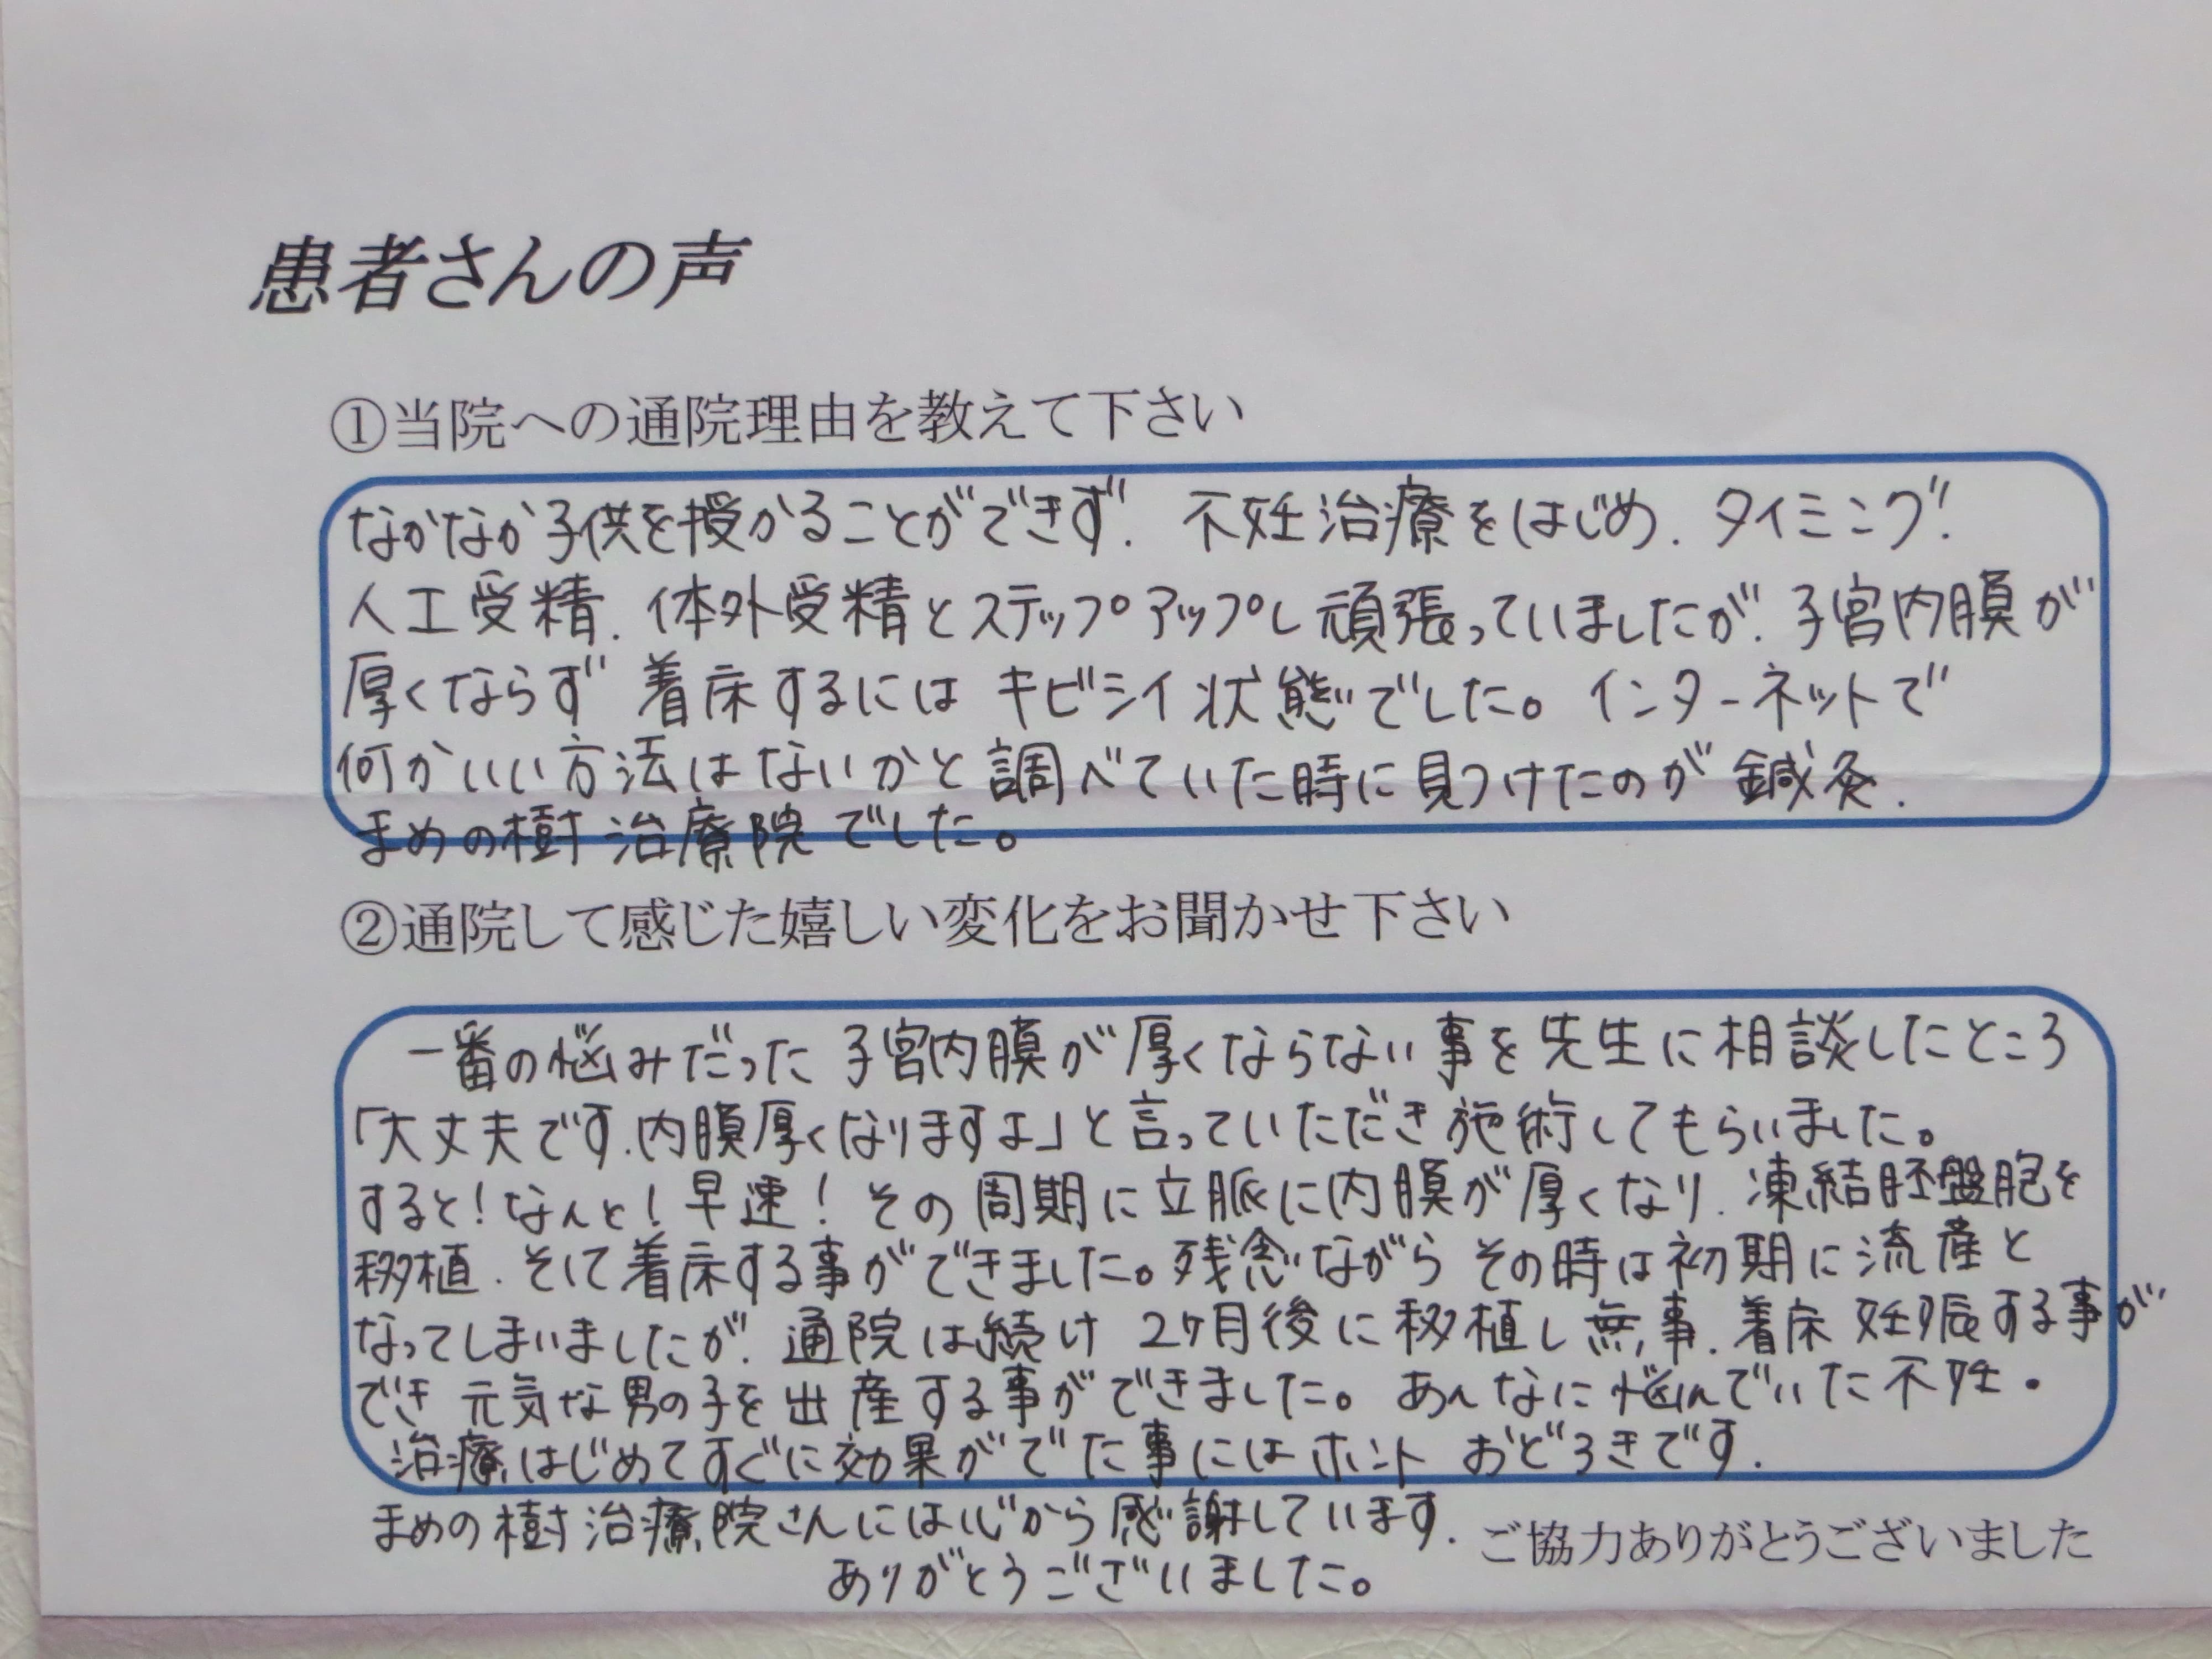 患者さんの声
①当院への通院理由を教えて下さい
なかなか子供を授かることができず、不妊治療をはじめ、タイミング、
人工受精、体外受精とステップアップし頑張っていましたが、子宮内膜が
厚くならず 着床するには キビシイ状態でした。インターネットで
何かいい方法はないかと調べていた時に見つけたのが鍼灸、
まめの樹治療院でした。
②通院して感じた嬉しい変化をお聞かせ下さい
一番の悩みだった子宮内膜が厚くならない事を先生に相談したところ
「大丈夫です、内膜厚くなりますよ」と言っていただき施術してもらいました。
すると!なんと!早速!その周期に立脈に内膜が厚くなり、凍結胚盤胞を
移植、そして着床する事ができました。残念ながらその時は初期に流産と
なってしまいましたが、通院は続け 2ヶ月後に移植し無事、着床 妊娠する事が
でき 元気な男の子を出産する事ができました。あんなに悩んでいた不妊。
治療はじめてすぐに効果がでた事にはホント おどろきです。
まめの樹治療院さんには心から感謝しています。
ご協力ありがとうございました
ありがとうございました。